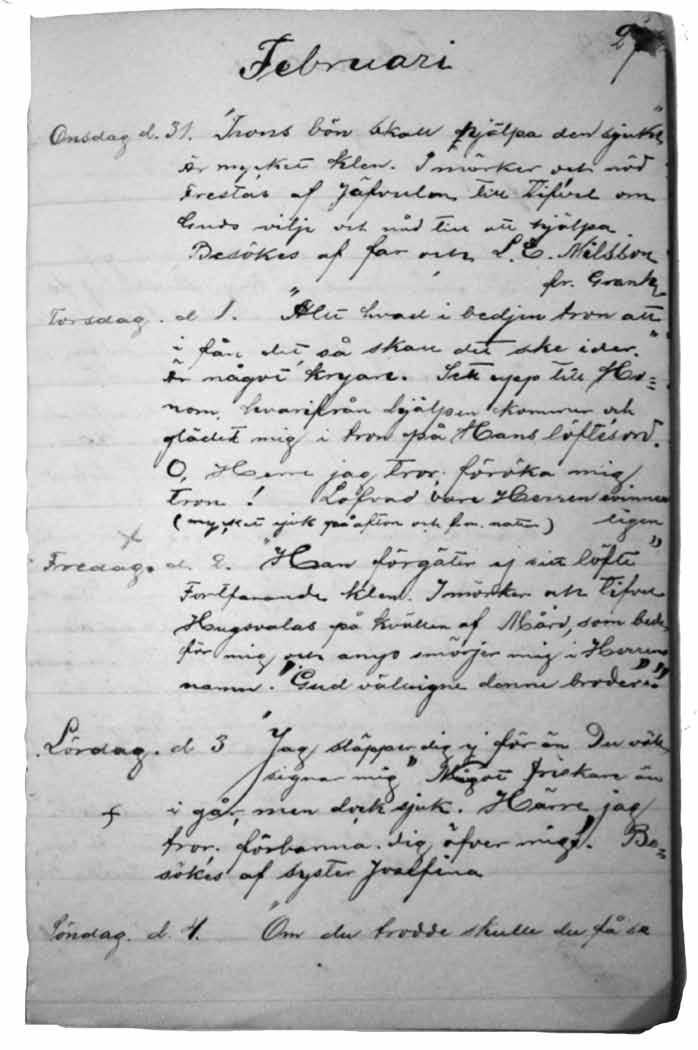 Februari 27
Onsdag d. 31. "Trons bön skall hjälpa den sjuke"
Är mycket klen. I mörker och nöd
Frestas af Jäfvulen till tifvel om
Guds vilje och nåd till att hjälpa.
Besökes af far och L. E. Nilsson
fr. Grank
Torsdag. d 1. "Allt hvad i bedjen tron att
i fån det, så skall det ske ider."
Är något kryare. Sett upp till Ho=
nom, hvarifrån hjälpen kommer och
glädt mig i tron på Hans löftesord.
O, Herre jag tror; föröka mig
tron! Lofvad vare Herren evinner
(mycket sjuk på afton och f.m. natten) ligen
Fredag. d. 2. "Han förgäter ej sitt löfte"
Fortfarande klen. I mörker och tifvel
Hugsvalas på kvällen af Mård, som beder
för mig och anyo smörjer mig i Herrens
namn. "Gud välsigne denne broder!"
Lördag. d 3 "Jag släpper dig ej för än Du väl
signar mig" Något friskare än
i går, men dock sjuk. Härre jag
tror. förbarma dig öfver mig! Be=
sökes af syster Josefina
Söndag. d. 4. "Om du trodde skulle du få se